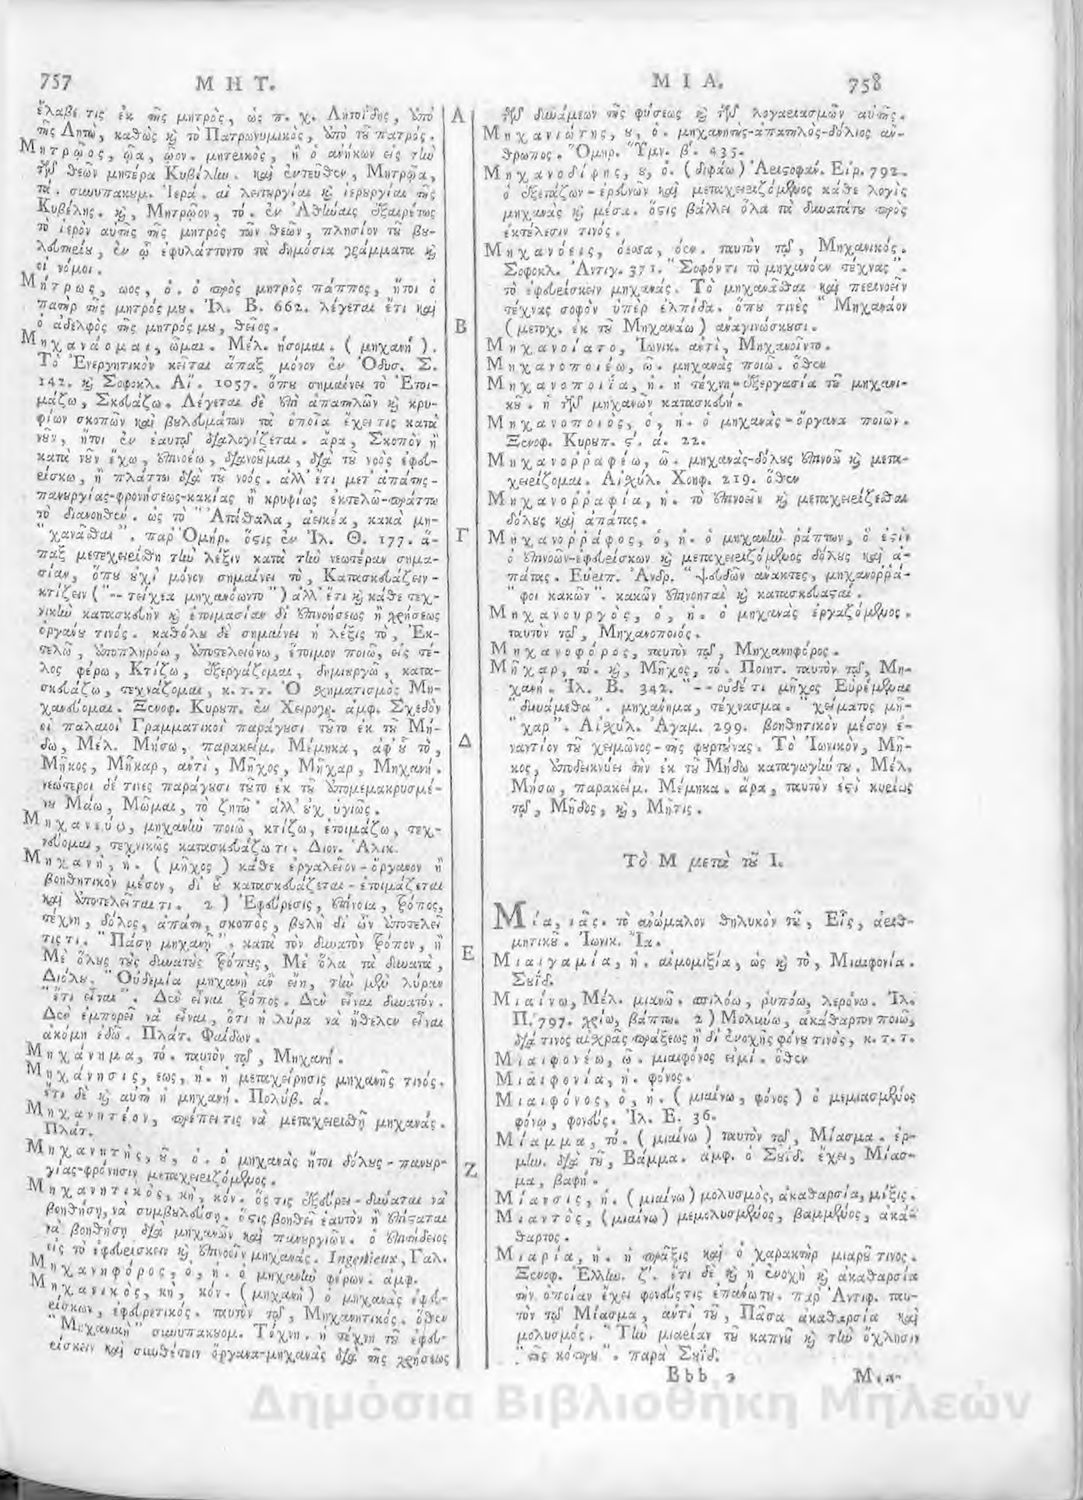 757 ΜΗΤ.
ἔλαβέ τις ἐκ τῆς μητρὸς, ὡς π. χ. Λητοΐδης, ὑπὸ
τῆς Λητῶ, καθὼς καὶ τὸ Πατρωνυμικὸς, ὑπὸ τοῦ πατρός.
Μητρῷος, ῴα, ῷον. μητρικὸς, ἢ ὁ ἀνήκων εἰς τὴν
τῶν θεῶν μητέρα Κυβέλην. καὶ ἐντεῦθεν, Μητρῷα,
τά. συνυπακουμ. Ἱερά. αἱ λειτουργίαι καὶ ἱερουργίαι τῆς
Κυβέλης. καὶ, Μητρῷον, τό. ἐν Ἀθήναις ἐξαιρέτως
τὸ ἱερὸν αὐτῆς τῆς μητρὸς τῶν θεῶν, πλησίον τοῦ βου-
λευτηρίου, ἐν ᾧ ἐφυλάττοντο τὰ δημόσια γράμματα καὶ
οἱ νόμοι.
Μήτρως, ωος, ὁ. ὁ πρὸς μητρὸς πάππος, ἤτοι ὁ
πατὴρ τῆς μητρός μου. Ἰλ. Β. 662. λέγεται ἔτι καὶ
ὁ ἀδελφὸς τῆς μητρός μου, θεῖος.
Μηχανάομαι, ῶμαι. Μέλ. ήσομαι. (μηχανή).
Τὸ Ἐνεργητικὸν κεῖται ἅπαξ μόνον ἐν Ὀδυσ. Σ.
142. καὶ Σοφοκλ. Αἴ. 1057. ὅπου σημαίνει τὸ Ἑτοι-
μάζω, Σκευάζω. Λέγεται δὲ ἐπὶ ἀπατηλῶν καὶ κρυ-
φίων σκοπῶν καὶ βουλευμάτων τὰ ὁποῖα ἔχει τις κατὰ
νοῦν, ἤτοι ἐν ἑαυτῷ διαλογίζεται. ἄρα, Σκοπὸν ἢ
κατὰ νοῦν ἔχω, ἐπινοέω, διανοοῦμαι, διὰ τοῦ νοὸς ἐφευ-
ρίσκω, ἢ πλάττω διὰ τοῦ νοός. ἀλλ' ἔτι μετ' ἀπάτης-
πανουργίας-φρονήσεως-κακίας ἢ κρυφίως ἐκτελῶ-πράττω
τὸ διανοηθέν. ὡς τὸ "Ἀτάσθαλα, ἀεικέα, κακὰ μη-
"χανᾶσθαι". παρ' Ὁμήρ. ὅςις ἐν Ἰλ. Θ. 177. ἅ-
παξ μετεχειρίσθη τὴν λέξιν κατὰ τὴν νεωτέραν σημα-
σίαν, ὅπου οὐχὶ μόνον σημαίνει τὸ, Κατασκευάζειν-
κτίζειν ("-- τείχεα μηχανόωντο") ἀλλ' ἔτι καὶ κάθε τεχ-
νικὴν κατασκευὴν καὶ ἑτοιμασίαν δι' ἐπινοήσεως ἢ χρήσεως
ὀργάνου τινός. καθόλου δὲ σημαίνει ἡ λέξις τὸ, Ἐκ-
τελῶ, ἀποπληρόω, ἀποτελειόνω, ἕτοιμον ποιῶ, εἰς τέ-
λος φέρω, Κτίζω, ἐξεργάζομαι, δημιουργῶ, κατα-
σκευάζω, τεχνάζομαι, κ. τ. τ. Ὁ χηματισμὸς Μη-
χανεύομαι. Ξενοφ. Κυρουπ. ἐν Χειρογρ. ἀμφ. Σχεδὸν
οἱ παλαιοὶ Γραμματικοὶ παράγουσι τοῦτο ἐκ τοῦ Μή-
δω, Μέλ. Μήσω, παρακείμ. Μέμηκα, ἀφ' οὗ τὸ,
Μῆκος, Μῆκαρ, ἀντὶ, Μῆχος, Μῆχαρ, Μηχανή.
νεώτεροι δέ τινες παράγουσι τοῦτο ἐκ τοῦ ἀπομεμακρυσμέ-
νου Μάω, Μῶμαι, τὸ ζητῶ· ἀλλ' οὐχ ὑγιῶς.
Μηχανεύω, μηχανὴν ποιῶ, κτίζω, ἑτοιμάζω, τεχ-
νεύομαι, τεχνικῶς κατασκευάζω τι. Διον. Ἁλικ.
Μηχανή, ἡ. (μῆχος) κάθε ἐργαλεῖον-ὄργανον ἢ
βοηθητικὸν μέσον, δι' οὗ κατασκευάζεται-ἑτοιμάζεται
καὶ ἀποτελεῖταί τι. 2) Ἐφεύρεσις, ἐπίνοια, τρόπος,
τέχνη, δόλος, ἀπάτη, σκοπὸς, βουλὴ δι' ὧν ἀποτελεῖ
τίς τι. "Πάσῃ μηχανῇ". κατὰ τὸν δυνατὸν τρόπον, ἢ
Μὲ ὅλους τοὺς δυνατοὺς τρόπους, Μὲ ὅλα τὰ δυνατὰ,
Διόλου. "Οὐδεμία μηχανὴ ἂν εἴη, τὴν μὲν λύραν
"ἔτι εἶναι". Δὲν εἶναι τρόπος. Δὲν εἶναι δυνατόν.
Δὲν ἐμπορεῖ νὰ εἶναι, ὅτι ἡ λύρα νὰ ἤθελεν εἶναι
ἀκόμη ἐδῶ. Πλάτ. Φαίδων.
Μηχάνημα, τό. ταυτὸν τῷ, Μηχανή.
Μηχάνησις, εως, ἡ. ἡ μεταχείρησις μηχανῆς τινός.
ἔτι δὲ καὶ αὐτὴ ἡ μηχανή. Πολύβ. ά.
Μηχανητέον, πρέπει τις νὰ μεταχειρισθῇ μηχανάς.
Πλάτ.
Μηχανητὴς, οῦ, ὁ. ὁ μηχανὰς ἤτοι δόλους-πανουρ-
γίας-φρόνησιν μεταχειριζόμενος.
Μηχανητικὸς, κὴ, κόν. ὅς τις ἐξεύρει-δύναται νὰ
βοηθήσῃ, νὰ συμβουλεύσῃ. ὅςις βοηθεῖ ἑαυτὸν ἢ ἐπίςαται
νὰ βοηθήσῃ διὰ μηχανῶν καὶ πανουργιῶν. ὁ ἐπιτήδειος
εἰς τὸ ἐφευρίσκειν καὶ ἐπινοεῖν μηχανάς. Ingenieux, Γαλ.
Μηχανηφόρος, ὁ, ἡ. ὁ μηχανὴν φέρων. ἀμφ.
Μηχανικὸς, κὴ, κόν. (μηχανή) ὁ μηχανὰς ἐφευ-
ρίσκων, ἐφευρετικός. ταυτὸν τῷ, Μηχανητικός. ὅθεν
"Μηχανική" συνυπακουομ. Τέχνη. ἡ τέχνη τοῦ ἐφευ-
ρίσκειν καὶ συνθέτειν ὄργανα-μηχανὰς διὰ τῆς χρήσεως
Α
Β
Γ
Δ
Ε
Ζ
ΜΙΑ. 758
τῶν δυνάμεων τῆς φύσεως καὶ τῶν λογαριασμῶν αὐτῆς.
Μηχανιώτης, ου, ὁ. μηχανητὴς-ἀπατηλὸς-δόλιος ἄν-
θρωπος. Ὅμηρ. Ὕμν. β'. 435.
Μηχανοδίφης, ου, ὁ. (διφάω) Ἀριςοφάν. Εἰρ. 792.
ὁ ἐξετάζων-ἐρευνῶν καὶ μεταχειριζόμενος κάθε λογῆς
μηχανὰς καὶ μέσα. ὅςις βάλλει ὅλα τὰ δυνατά του πρὸς
ἐκτέλεσιν τινός.
Μηχανόεις, όεσσα, όεν. ταυτὸν τῷ, Μηχανικός.
Σοφοκλ. Ἀντιγ. 371. "Σοφόν τι τὸ μηχανόεν τέχνας".
τὸ ἐφευρίσκειν μηχανάς. Τὸ μηχανᾶσθαι καὶ περινοεῖν
τέχνας σοφὸν ὑπὲρ ἐλπίδα. ὅπου τινὲς "Μηχανάον
(μετοχ. ἐκ τοῦ Μηχανάω) ἀναγινώσκουσι.
Μηχανοίατο, Ἰωνικ. ἀντὶ, Μηχανοῖντο.
Μηχανοποιέω, ῶ. μηχανὰς ποιῶ. ὅθεν
Μηχανοποιία, ἡ. ἡ τέχνη-ἐξεργασία τοῦ μηχανι-
κοῦ. ἡ τῶν μηχανῶν κατασκευή.
Μηχανοποιὸς, ὁ, ἡ. ὁ μηχανὰς-ὄργανα ποιῶν.
Ξενοφ. Κυρουπ. ς'. ά. 22.
Μηχανορραφέω, ῶ. μηχανὰς-δόλους ἐπινοῶ καὶ μετα-
χειρίζομαι. Αἰχύλ. Χοηφ. 219. ὅθεν
Μηχανορραφία, ἡ. τὸ ἐπινοεῖν καὶ μεταχειρίζεσθαι
δόλους καὶ ἀπάτας.
Μηχανορράφος, ὁ, ἡ. ὁ μηχανὴν ῥάπτων, ὅ ἐςὶν
ὁ ἐπινοῶν-ἐφευρίσκων καὶ μεταχειριζόμενος δόλους καὶ ἀ-
πάτας. Εὐριπ. Ἀνδρ. "Ψευδῶν ἄνακτες, μηχανορρά-
"φοι κακῶν". κακῶν ἐπινοηταὶ καὶ κατασκευαςαί.
Μηχανουργὸς, ὁ, ἡ. ὁ μηχανὰς ἐργαζόμενος.
ταυτὸν τῷ, Μηχανοποιός.
Μηχανοφόρος, ταυτὸν τῷ, Μηχανηφόρος.
Μῆχαρ, τό. καὶ, Μῆχος, τό. Ποιητ. ταυτὸν τῷ, Μη-
χανή. Ἰλ. Β. 342. "--οὐδέ τι μῆχος Εὑρέμεναι
"δυνάμεσθα". μηχάνημα, τέχνασμα. "χείματος μῆ-
"χαρ". Αἰχύλ. Ἀγαμ. 299. βοηθητικὸν μέσον ἐ-
ναντίον τοῦ χειμῶνος-τῆς φουρτούνας. Τὸ Ἰωνικὸν, Μῆ-
κος, ἀποδεικνύει τὴν ἐκ τοῦ Μήδω καταγωγήν του. Μέλ.
Μήσω, παρακείμ. Μέμηκα. ἄρα, ταυτόν ἐςι κυρίως
τῷ, Μῆδος, καὶ, Μῆτις.
Τὸ Μ μετὰ τοῦ Ι.
Μία, ιᾶς. τὸ ἀνώμαλον θηλυκὸν τοῦ, Εἷς, ἀριθ-
μητικοῦ. Ἰωνικ. Ἴα.
Μιαιγαμία, ἡ. αἱμομιξία, ὡς καὶ τὸ, Μιαιφονία.
Σουΐδ.
Μιαίνω, Μέλ. μιανῶ. σπιλόω, ῥυπόω, λερόνω. Ἰλ.
Π. 797. χρίω, βάπτω. 2) Μολύνω, ἀκάθαρτον ποιῶ,
διά τινος αἰχρᾶς πράξεως ἢ δι' ἐνοχῆς φόνου τινὸς, κ. τ. τ.
Μιαιφονέω, ῶ. μιαιφόνος εἰμί. ὅθεν
Μιαιφονία, ἡ. φόνος.
Μιαιφόνος, ὁ, ἡ. (μιαίνω, φόνος) ὁ μεμιασμένος
φόνῳ, φονεύς. Ἰλ. Ε. 36.
Μίαμμα, τό. (μιαίνω) ταυτὸν τῷ, Μίασμα. ἑρ-
μην. διὰ τοῦ, Βάμμα. ἀμφ. ὁ Σουΐδ. ἔχει, Μίασ-
μα, βαφή.
Μίανσις, ἡ. (μιαίνω) μολυσμὸς, ἀκαθαρσία, μίξις.
Μιαντὸς, (μιαίνω) μεμολυσμένος, βαμμένος, ἀκά-
θαρτος.
Μιαρία, ἡ. ἡ πρᾶξις καὶ ὁ χαρακτὴρ μιαροῦ τινος.
Ξενοφ. Ἑλλην. ζ'. ἔτι δὲ καὶ ἡ ἐνοχὴ καὶ ἀκαθαρσία
τὴν ὁποίαν ἔχει φονεύς τις ἐπάνω του. παρ' Ἀντιφ. ταυ-
τὸν τῷ Μίασμα, ἀντὶ τοῦ, Πᾶσα ἀκαθαρσία καὶ
μολυσμός. "Τὴν μιαρίαν τοῦ καπνοῦ καὶ τὴν ὄχλησιν
"τῆς κόπρου". παρὰ Σουΐδ.
Bbb 2 Μια-
Δημόσια Βιβλιοθήκη Μηλεών